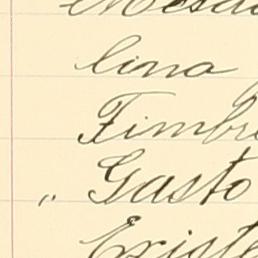 lina
Timbre
„ Gasto
Existe